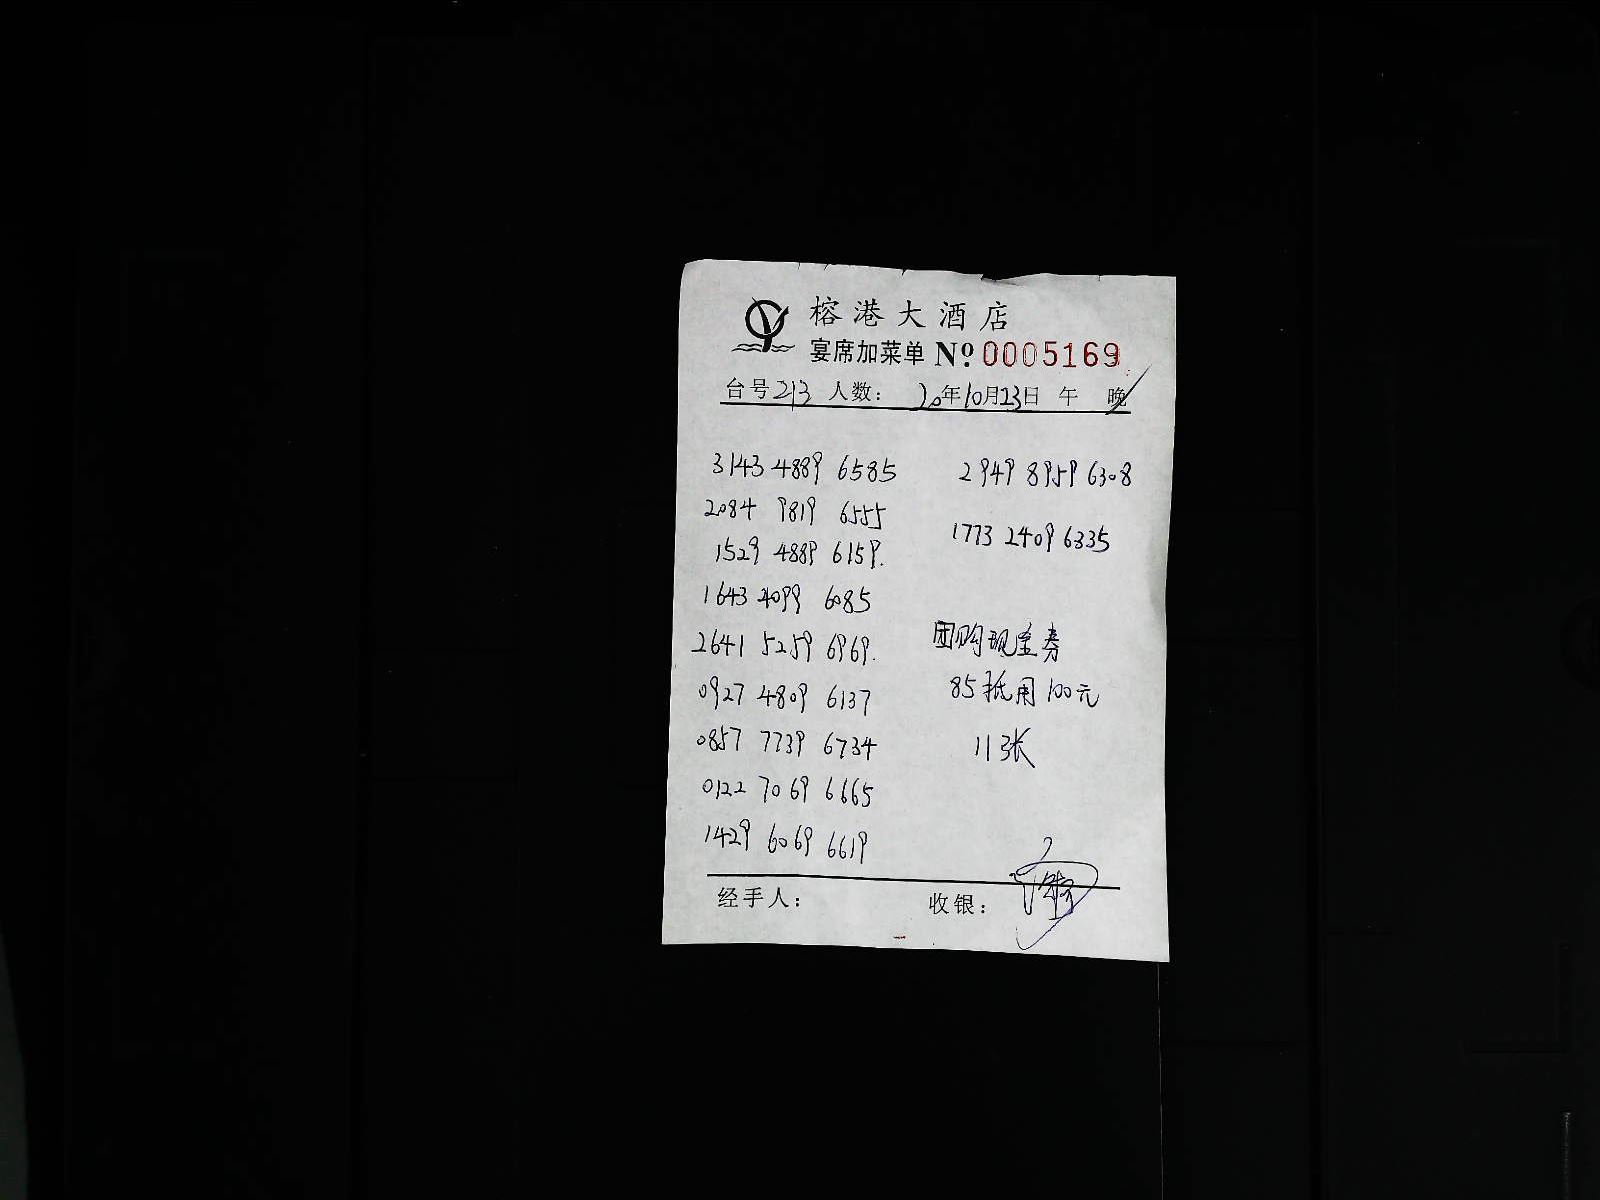 榕港大酒店
宴席加菜单 Nº 0005169
台号213 人数： 20年10月23日 午 晚
3143 4889 6585
2084 9819 6555
1529 4889 6159.
1643 4099 6085
2641 5259 6969.
0927 4809 6137
0857 7739 6734
0122 7069 6665
1429 6069 6619
2949 8959 6308
1773 2409 6335
团购现金券
85抵用100元
11张
经手人： 收银：